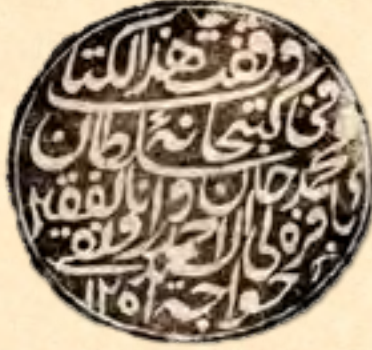 وقفت هذا الكتاب
في كتبخانۀ سلطان
محمد خان وانا الفقير
قره لى احمد
خواجة